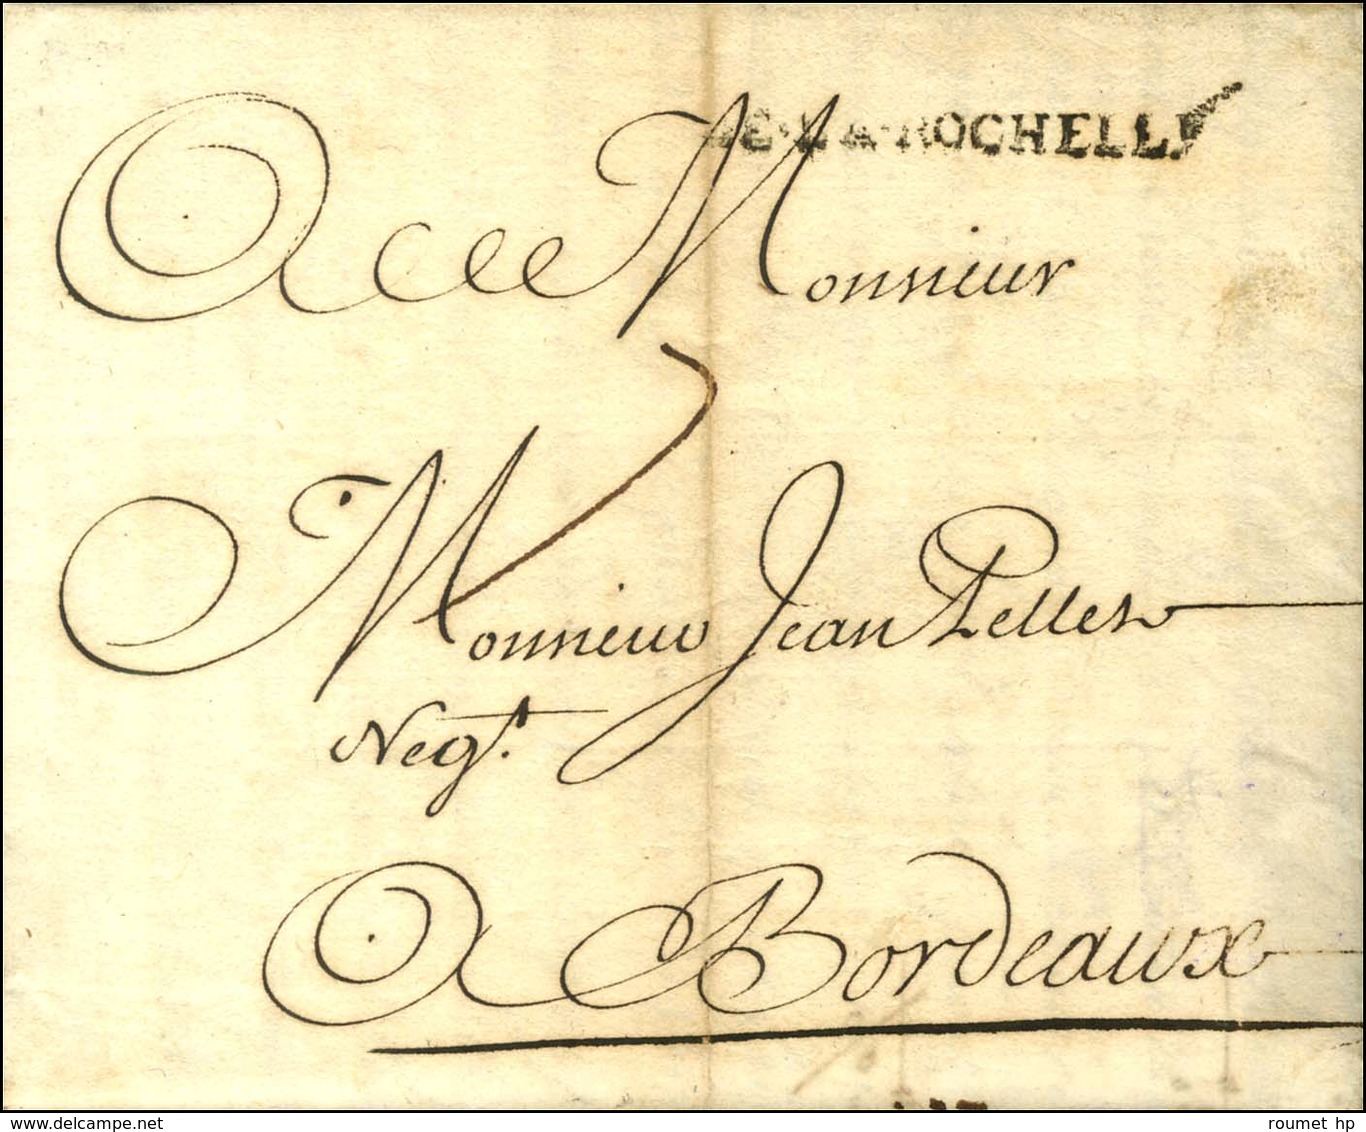 DE·LA·ROCHELLE
A Monsieur
7
Monsieur Jean Pellet
Negt.
A Bordeaux
delcampe.net
roumet hp